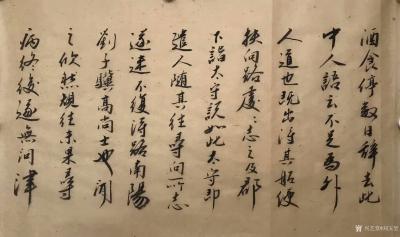 酒食停数日辞去此
中人語云不足為外
人道也既出得其船便
扶向路處處志之及郡
下詣太守説如此太守即
遣人随其往尋向所志
遂迷不復得路南陽
劉子驥高尚士也聞
之欣然規往未果尋
病終後遂無問津